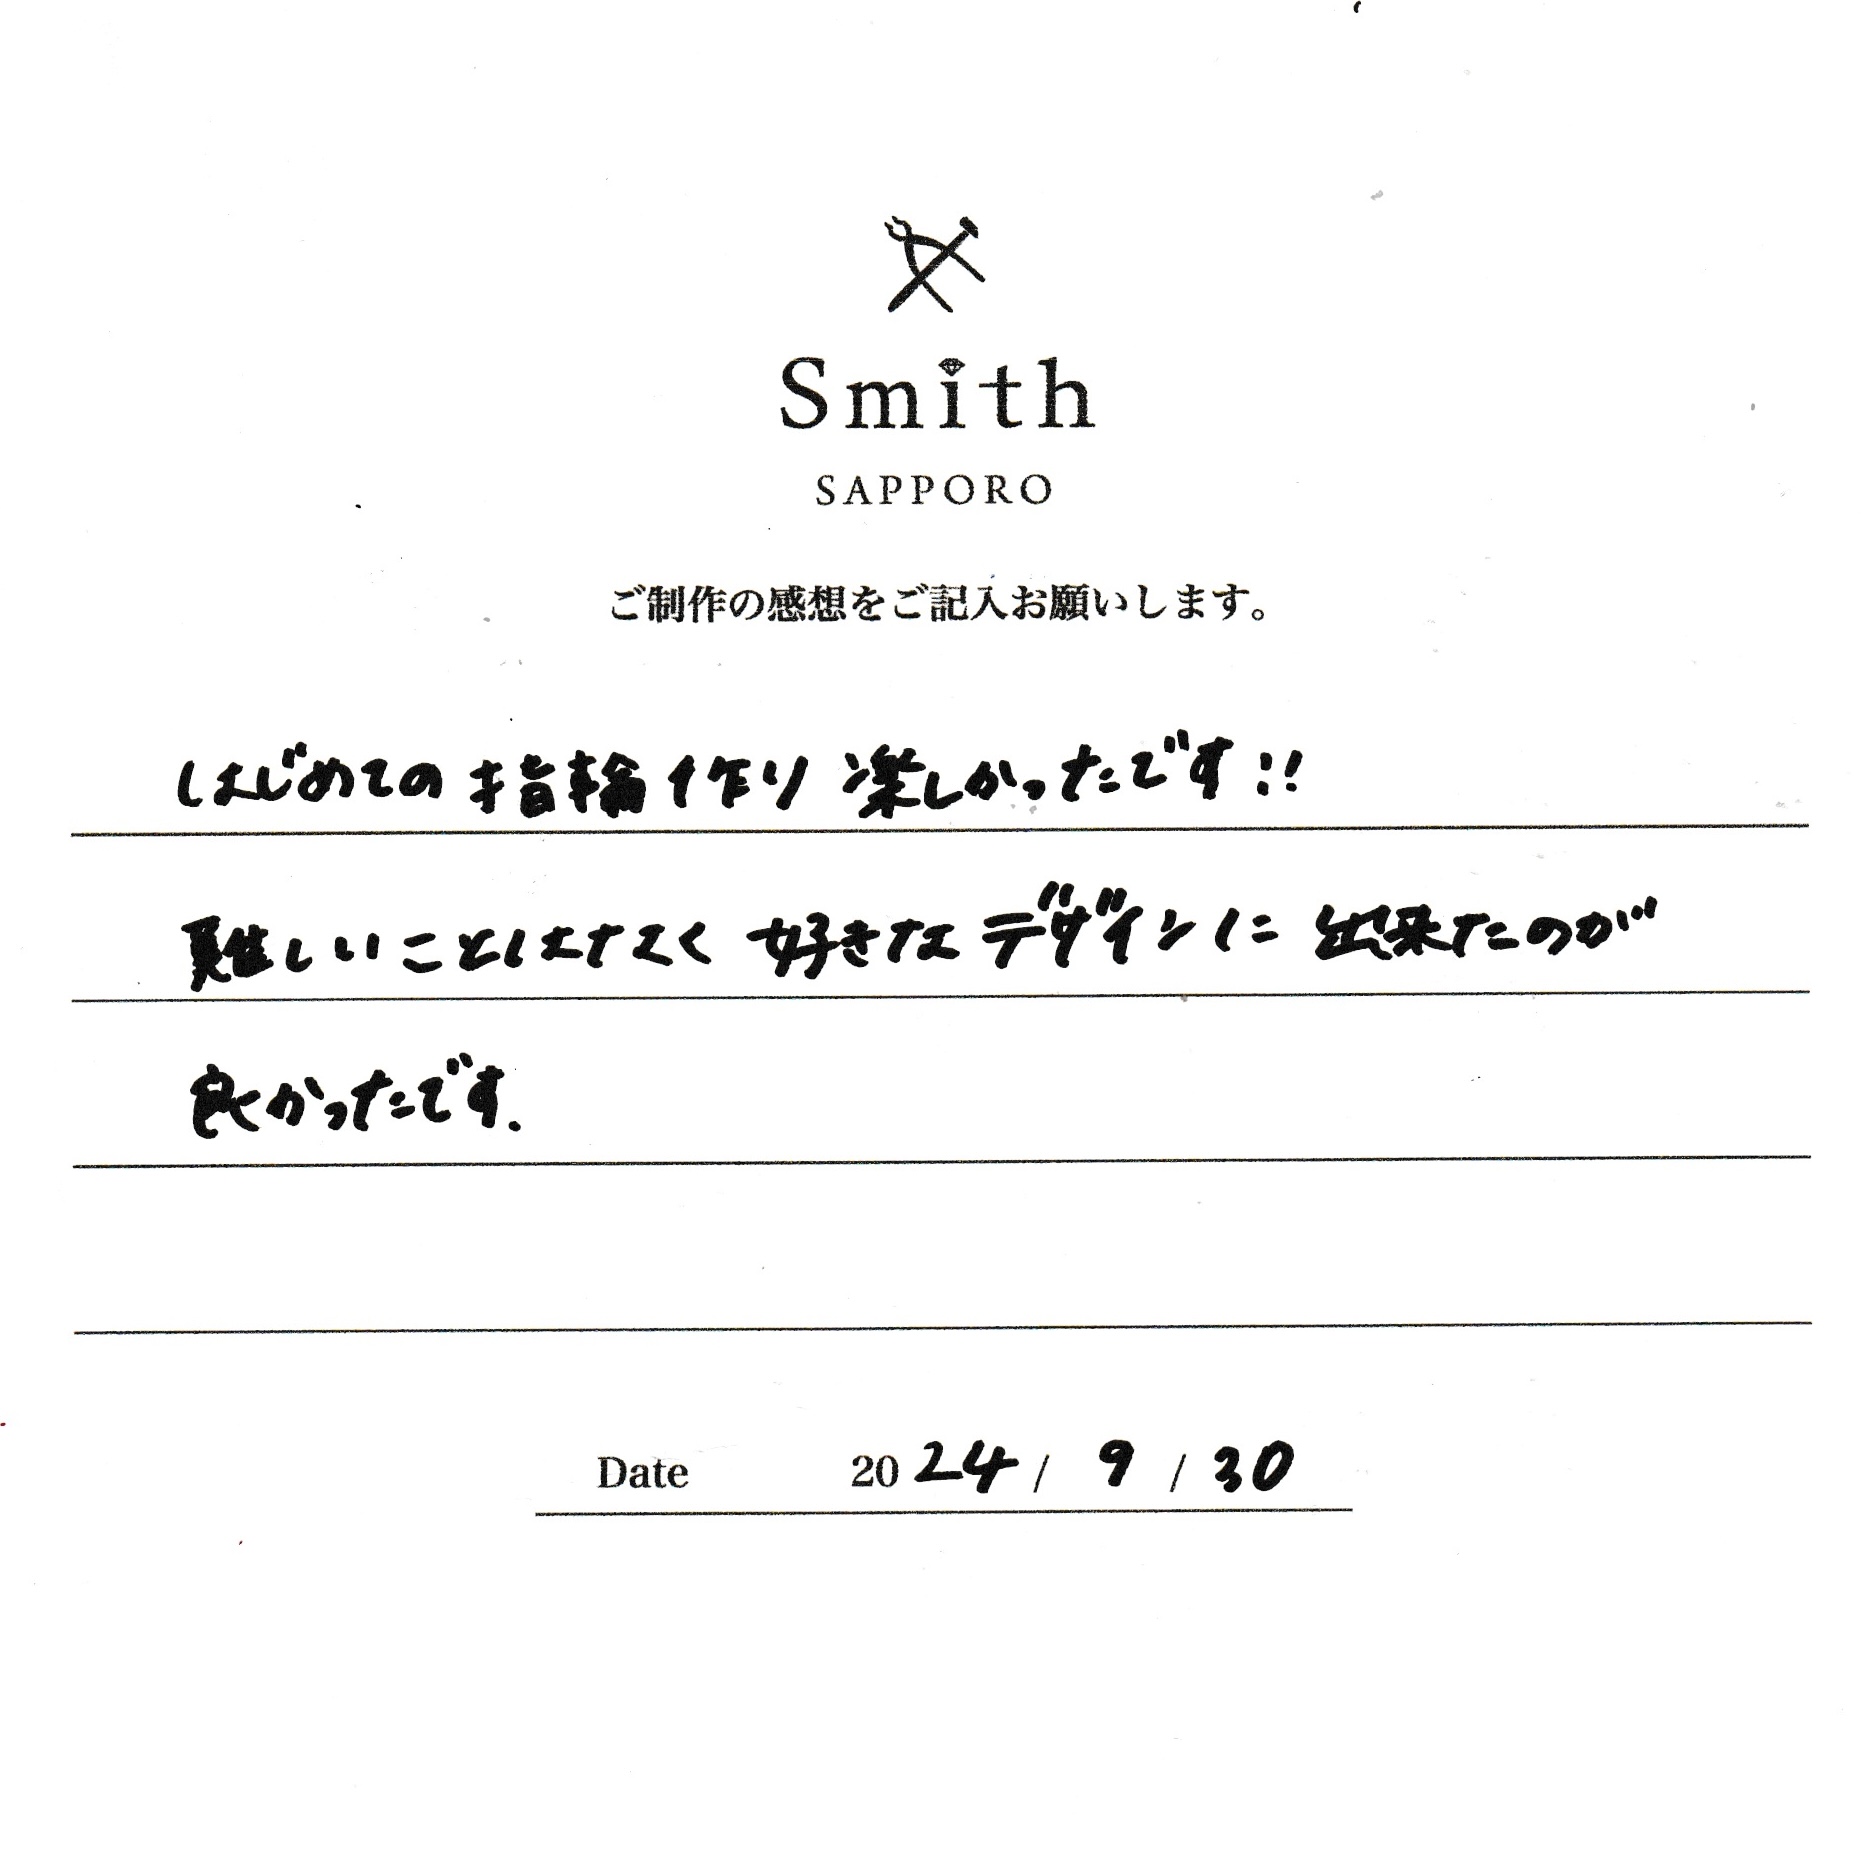 Smith
SAPPORO
ご制作の感想をご記入お願いします。
はじめての指輪作り楽しかったです!!
難しいことはなく好きなデザインに出来たのが
良かったです.
Date 2024/9/30